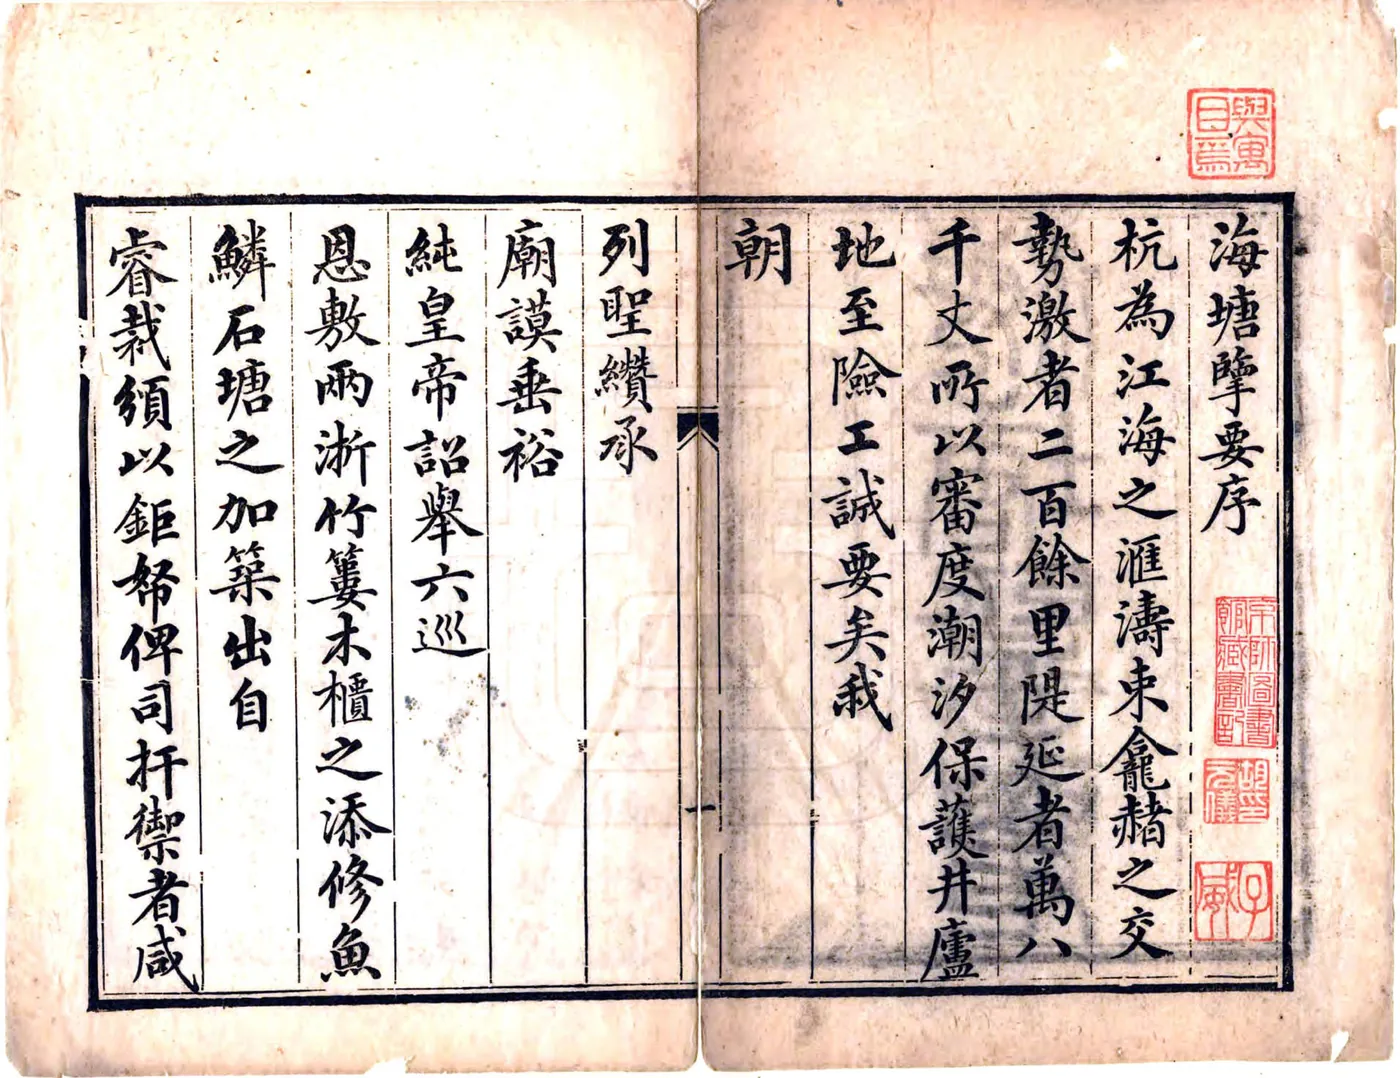 海塘擥要序
杭為江海之滙濤束龕赭之交
勢激者二百餘里隄延者萬八
千丈所以審度潮汐保護井廬
地至險工誠要矣我
朝
列聖纘承
廟謨垂裕
純皇帝詔舉六巡
恩敷兩浙竹簍木櫃之添修魚
鱗石塘之加築出自
睿裁須以鉅帑俾司扞禦者咸
一